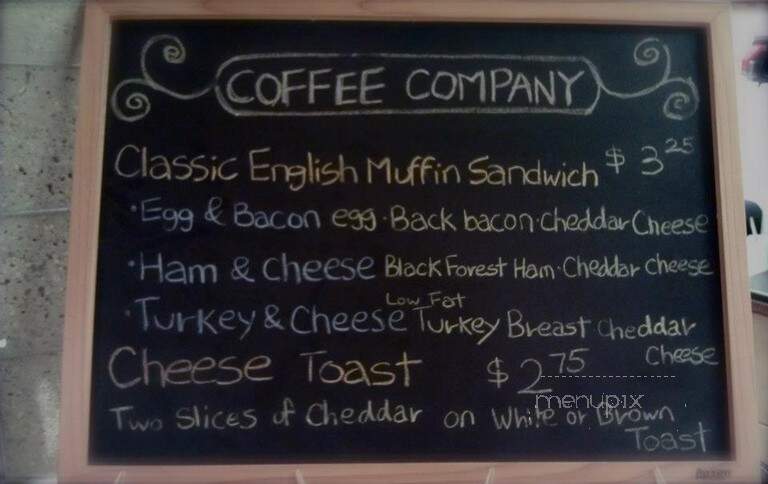 COFFEE COMPANY
Classic English Muffin Sandwich $ 3 25
· Egg & Bacon egg · Back bacon · Cheddar Cheese
· Ham & cheese Black Forest Ham · Cheddar cheese
Low Fat
· Turkey & Cheese Turkey Breast cheddar
Cheese
Cheese Toast $ 2 75
menupix
Two slices of cheddar on White or Brown
Toast